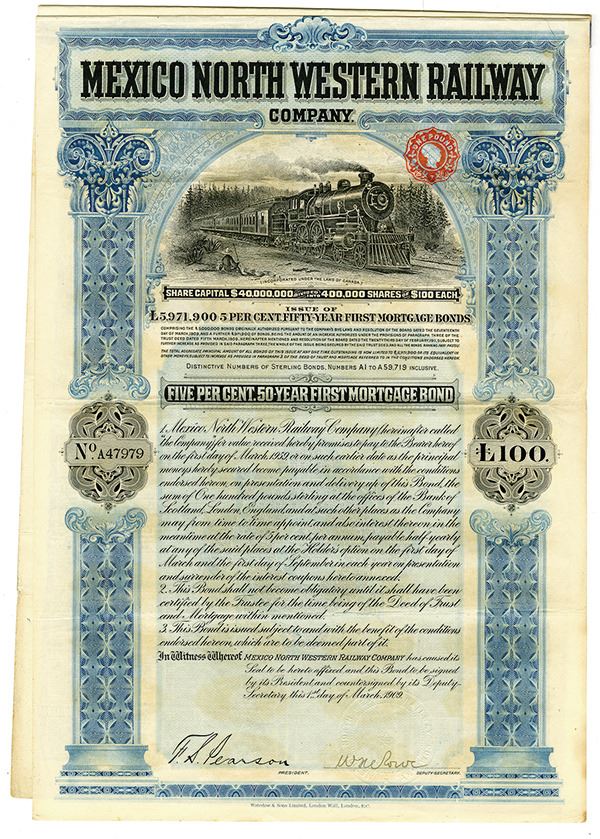 MEXICO NORTH WESTERN RAILWAY
COMPANY.
ONE POUND
(INCORPORATED UNDER THE LAWS OF CANADA.)
SHARE CAPITAL $40,000,000 400,000 SHARES OF $100 EACH.
ISSUE OF
£5,971,900 5 PER CENT. FIFTY-YEAR FIRST MORTGAGE BONDS
DISTINCTIVE NUMBERS OF STERLING BONDS, NUMBERS A1 TO A59,719 INCLUSIVE.
FIVE PER CENT. 50-YEAR FIRST MORTGAGE BOND
No. A47979
£100.
1. Mexico North Western Railway Company (hereinafter called
"the Company") for value received hereby promises to pay to the Bearer hereof
on the first day of March, 1959 or on such earlier date as the principal
moneys hereby secured become payable in accordance with the conditions
endorsed hereon, on presentation and delivery up of this Bond, the
sum of One hundred pounds sterling at the offices of the Bank of
Scotland, London, England, and at such other places as the Company
may from time to time appoint and also interest thereon in the
meantime at the rate of 5 per cent. per annum, payable half-yearly
at any of the said places at the Holders option on the first day of
March and the first day of September in each year on presentation
and surrender of the interest coupons hereto annexed.
2. This Bond shall not become obligatory until it shall have been
certified by the Trustee for the time being of the Deed of Trust
and Mortgage within mentioned.
3. This Bond is issued subject to and with the benefit of the conditions
endorsed hereon, which are to be deemed part of it.
In Witness Whereof MEXICO NORTH WESTERN RAILWAY COMPANY has caused its
Seal to be hereto affixed and this Bond to be signed
by its President and countersigned by its Deputy-
Secretary this 1st day of March, 1909.
F. S. Pearson
PRESIDENT.
DEPUTY-SECRETARY.
Waterlow & Sons Limited, London Wall, London, E.C.